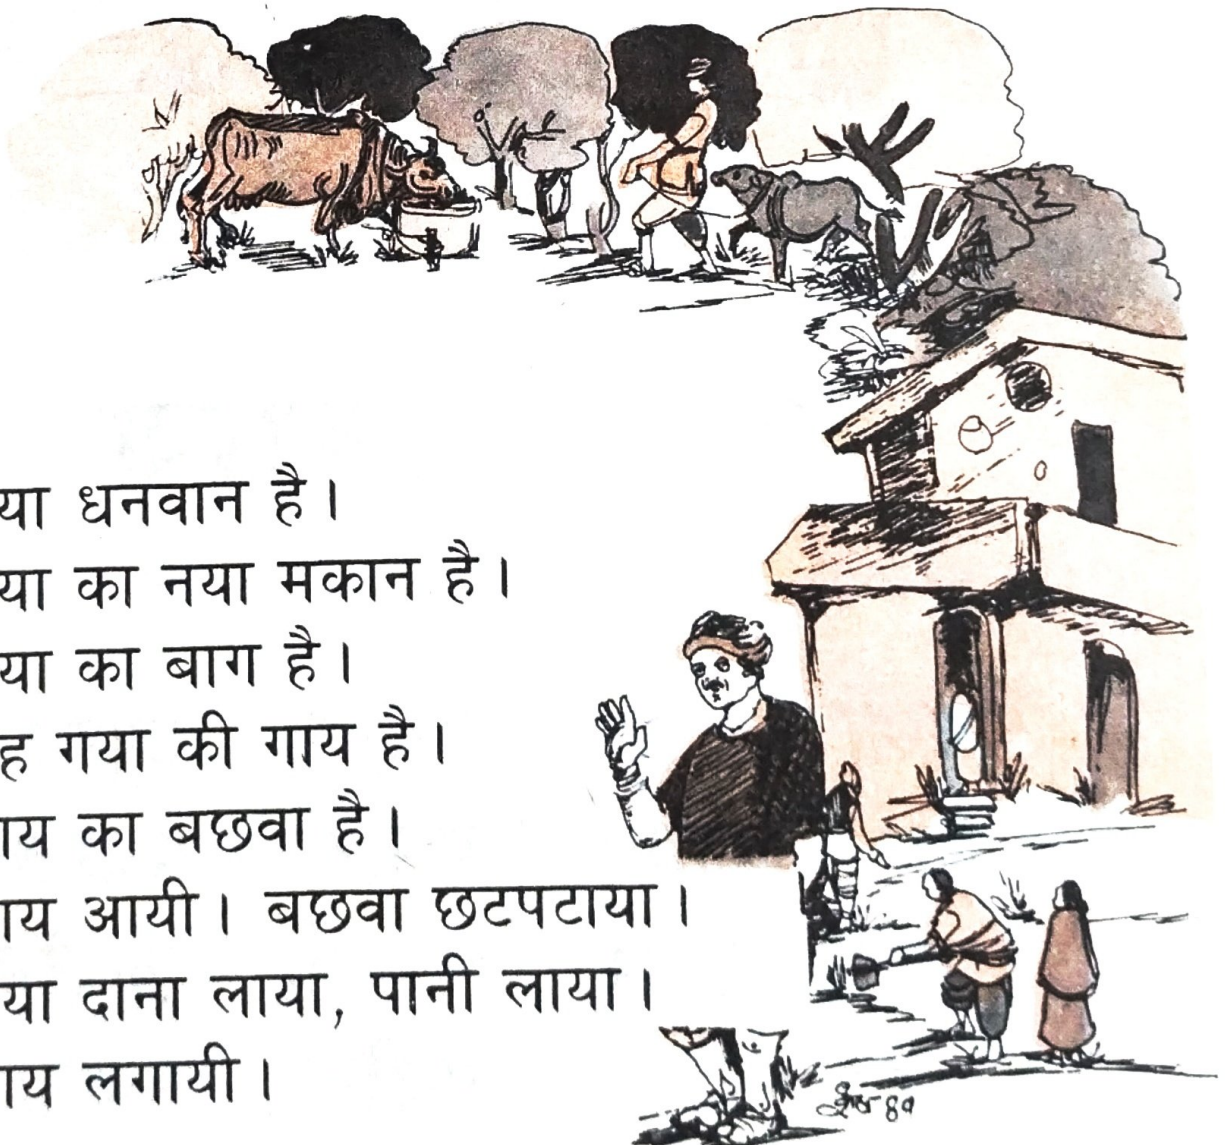 या धनवान है।
या का नया मकान है।
या का बाग है।
ह गया की गाय है।
ाय का बछवा है।
ाय आयी। बछवा छटपटाया।
या दाना लाया, पानी लाया।
ाय लगायी।